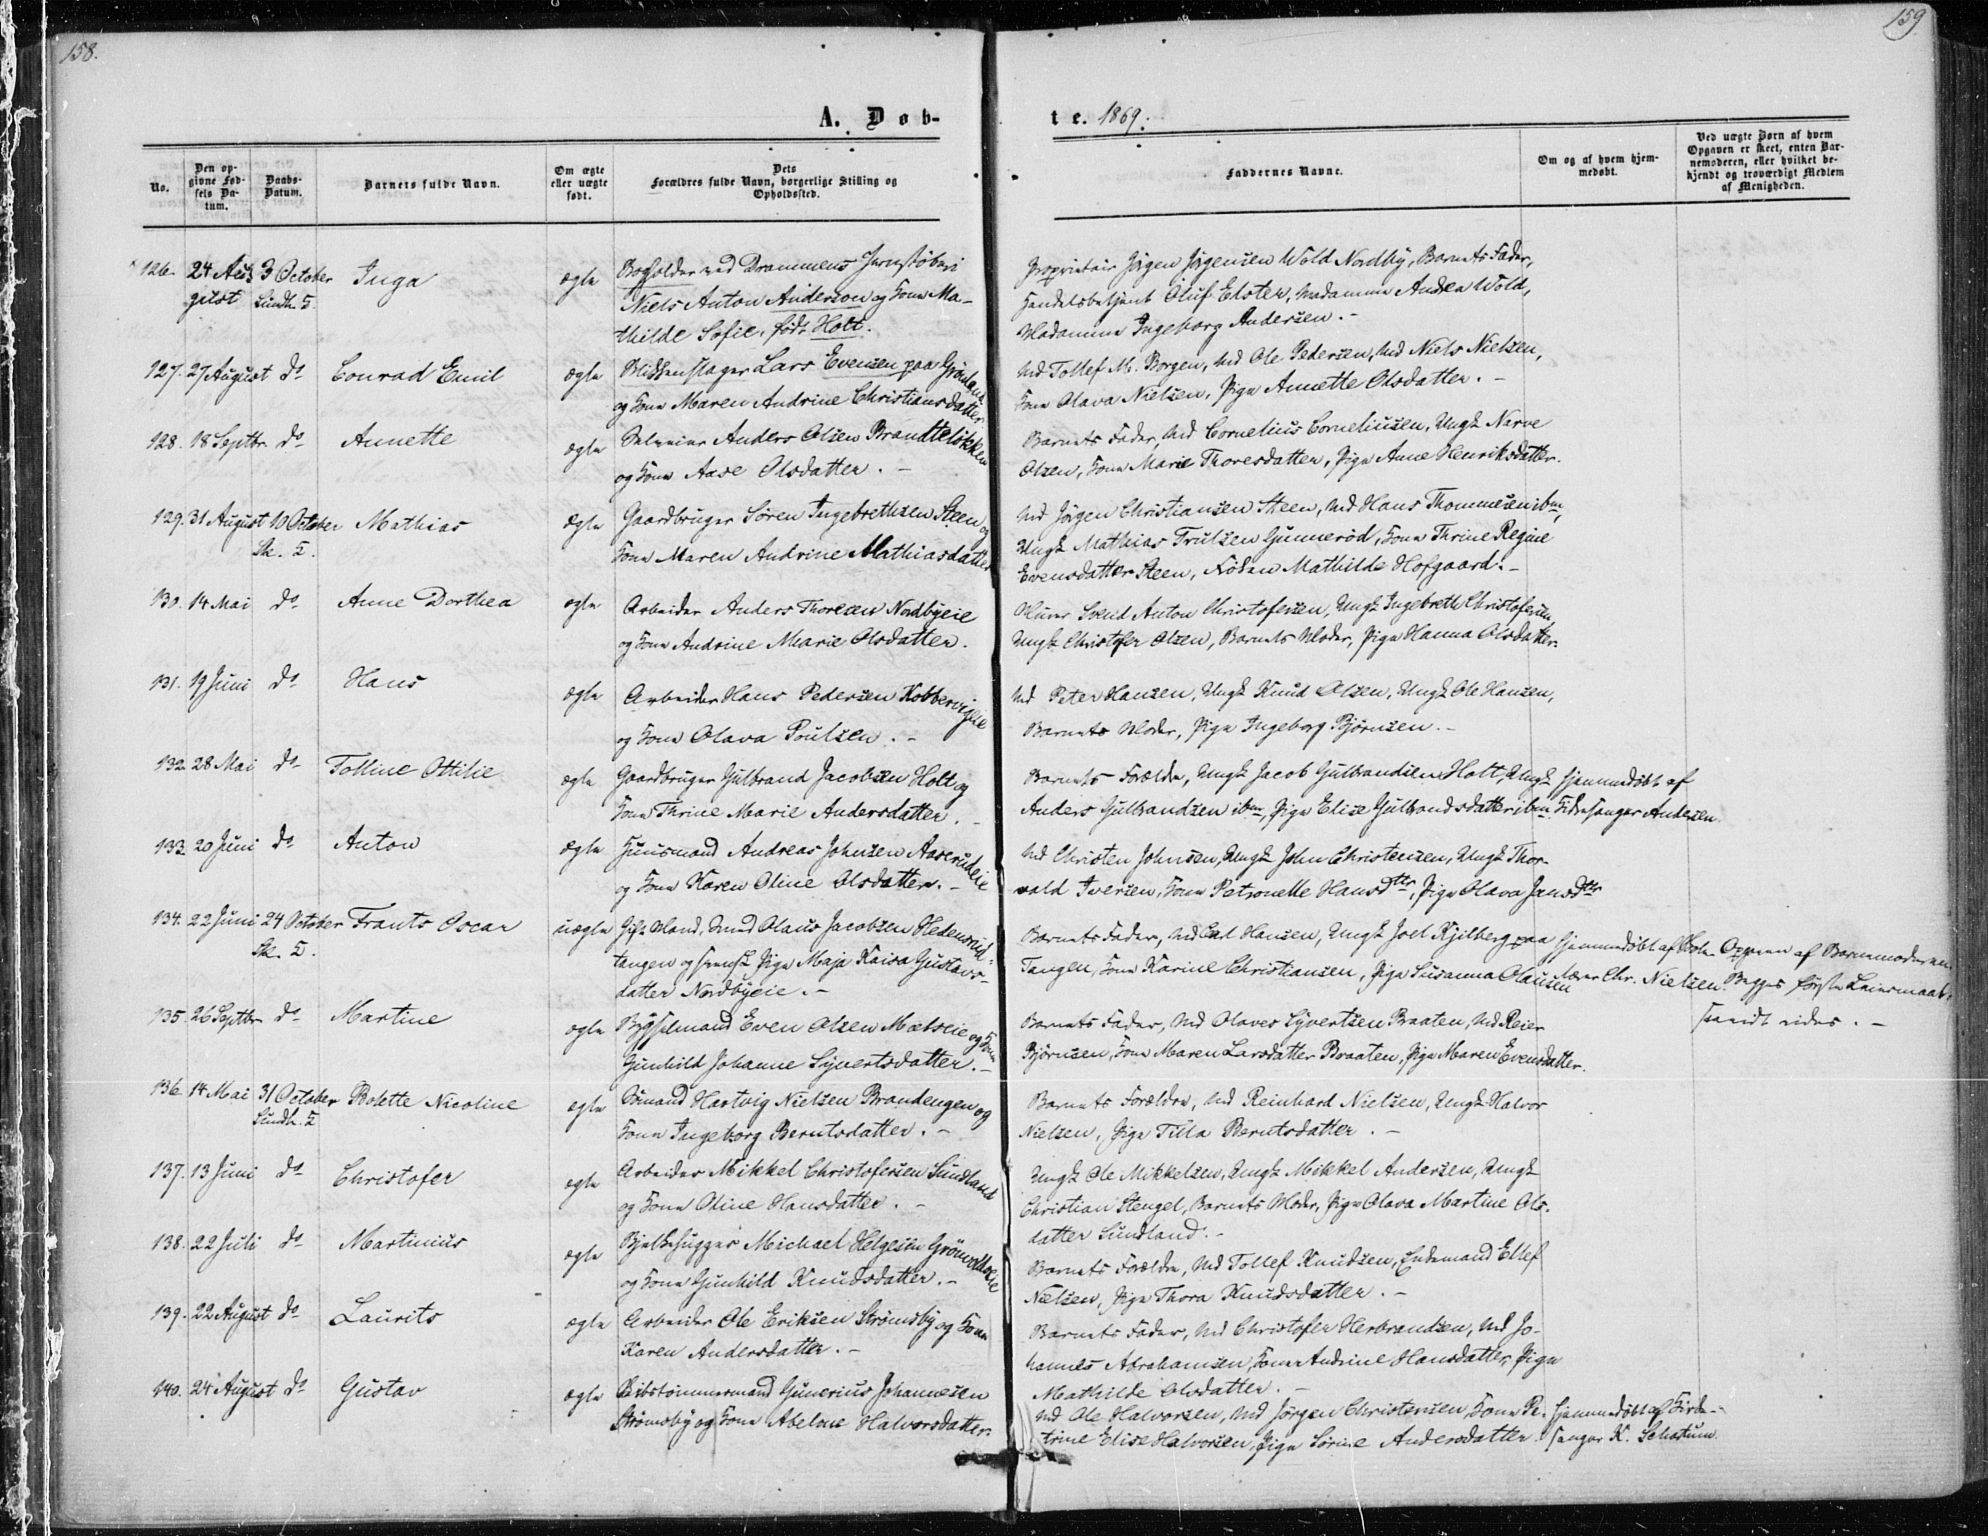 158.
159
A. Døb-
te. 1869.
No.
Den op-
givne Fød-
sels Da-
tum.
Daabs-
Datum.
Barnets fulde Navn.
Om ægte
eller uægte
født.
Dets
Forældres fulde Navn, borgerlige Stilling og
Opholdssted.
Faddernes Navne.
Om og af hvem hjem-
medøbt.
Ved uægte Børn af hvem
Opgaven er skeet, enten Bar-
nemoderen, eller hvilket be-
kjendt og troværdigt Medlem
af Menigheden.
126. 24 Au- 3 October Inga ægte Bogholder ved Drammens Jernstøberi
gust Sundh. K. Niels Anton Anderson og Kone Ma-
thilde Sofie, født Holt.
Proprietair Jörgen Jörgensen Wold Nordby, Barnets Fader,
Handelsbetjent Oluf Elster, Madamme Andrea Wold,
Madamme Ingeborg Andersen.-
127. 27 August do Conrad Emil ægte Blikkenslager Lars Evensen paa Grønland
og Kone Maren Andrine Christiansdatter
Md Tollef M. Borgen, Md Ole Pedersen, Md Niels Nielsen,
Kone Olava Nielsen, Pige Annette Olsdatter.-
128. 18 Septbr do Annette ægte Selveier Anders Olsen Brandteløkken
og Kone Aase Olsdatter.-
Barnets Fader, Md Cornelius Corneliussen, Ungk Narve
Olsen, Kone Marie Thoresdatter, Pige Anne Henriksdatter.
129. 31 August 10 October Mathias ægte Gaardbruger Søren Ingebrethsen Steen og
Sk. K. Kone Maren Andrine Mathiasdatter
Md Jörgen Christiansen Steen, Md Hans Thommesen ibm,
Ungk Mathias Trulsen Gunneröd, Kone Thrine Regine
Evensdatter Steen, Frøken Mathilde Hofgaard.-
130. 14 Mai do Anne Dorthea ægte Arbeider Anders Thoresen Nordbyeie
og Kone Andrine Marie Olsdatter.
Murer Svend Anton Christofersen, Ungk Ingebreth Christofersen,
Ungk Christofer Olsen, Barnets Moder, Pige Hanna Olsdatter.
131. 19 Juni do Hans ægte Arbeider Hans Pedersen Kobbervigeie
og Kone Olava Poulsen.-
Md Peter Hansen, Ungk Knud Olsen, Ungk Ole Hansen,
Barnets Moder, Pige Ingeborg Bjørnsen.-
132. 28 Mai do Tolline Ottilie ægte Gaardbruger Gulbrand Jacobsen Holt og
Kone Thrine Marie Andersdatter.-
Barnets Forældre, Ungk Jacob Gulbrandsen Holt, Ungk Hjemmedøbt af
Anders Gulbrandsen ibm, Pige Elise Gulbrandsdatter ibm. Kirkesanger Andersen.
133. 20 Juni do Anton ægte Huusmand Andreas Johnsen Aaserudeie
og Kone Karen Oline Olsdatter.-
Md Christen Johnsen, Ungk John Christensen, Ungk Thor-
vald Iversen, Kone Petronelle Hansdttr, Pige Olava Jansdttr
134. 22 Juni 24 October Frants Oscar uægte Gift Mand, Smed Olaus Jacobsen Hedensrud-
Sk. K. tangen og svensk Pige Maja Kaisa Gustavs-
datter Nordbyeie.-
Barnets Fader, Md Carl Hansen, Ungk Joel Kjilberg paa Hjemmedøbt af Skole- Opgaven af Barnemoderen.
Tangen, Kone Karine Christiansen, Pige Susanna Olausen lærer Chr. Nielsen. Begges første Leiermaal,
saavidt vides.-
135. 26 Septbr do Martine ægte Bygselmand Even Olsen Mælseie og Kone
Gunhild Johanne Syvertsdatter.-
Barnets Fader, Md Olaves Syvertsen Braaten, Md Reier
Bjørnsen, Kone Maren Larsdatter Braaten, Pige Maren Evensdatter.
136. 14 Mai 31 October Bolette Nicoline ægte Sømand Hartvig Nielsen Brandengen og
Sundh. K. Kone Ingeborg Berntsdatter.-
Barnets Forældre, Md Reinhard Nielsen, Ungk Halvor
Nielsen, Pige Tilla Berntsdatter.-
137. 13 Juni do Christofer ægte Arbeider Mikkel Christofersen Sundland
og Kone Oline Hansdatter.-
Ungk Ole Mikkelsen, Ungk Mikkel Andersen, Ungk
Christian Stengel, Barnets Moder, Pige Olava Martine Ols-
datter Sundland.-
138. 22 Juli do Martinius ægte Bjelkehugger Michael Helgesen Grønvoldeie
og Kone Gunhild Knudsdatter.-
Barnets Forældre, Md Tollef Knudsen, Enkemand Ellef
Nielsen, Pige Thora Knudsdatter.-
139. 22 August do Laurits ægte Arbeider Ole Eriksen Strømsby og Kone
Karen Andersdatter.-
Barnets Fader, Md Christofer Herbrandsen, Md Jo-
hannes Abrahamsen, Kone Andrine Hansdatter, Pige
Mathilde Olsdatter.-
140. 24 August do Gustav ægte Skibstømmermand Gunerius Johannesen
Strømsby og Kone Abelone Halvorsdatter.
Md Ole Halvorsen, Md Jörgen Christensen, Kone Pe- Hjemmedøbt af Kirke-
trine Elise Halvorsen, Pige Sørine Andersdatter. sanger K. Schotum.